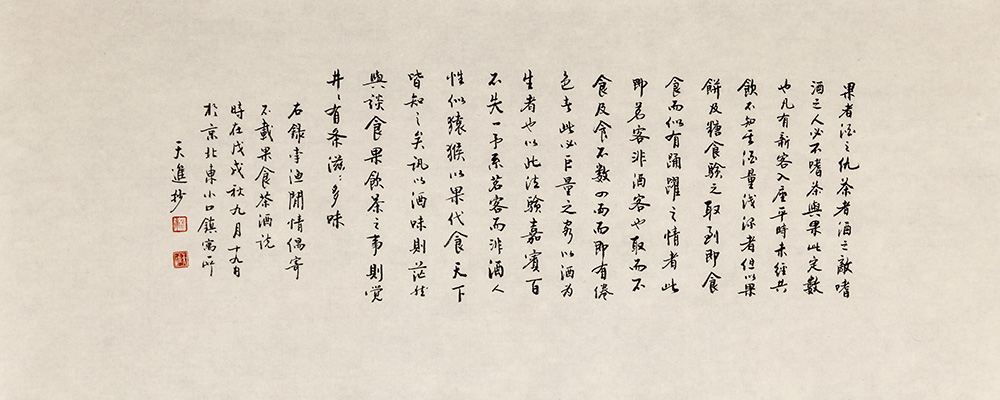 果者酒之仇茶者酒之敵嗜
酒之人必不嗜茶與果此定數
也凡有新客入座平時未經共
飲不知其酒量淺深者但以果
餅及糖食驗之取到即食
食而似有踊躍之情者此
即茗客非酒客也取而不
食及食不數四而即有倦
色者此必巨量之客以酒為
生者也以此法驗嘉賓百
不失一予系茗客而非酒人
性似猿猴以果代食天下
皆知之矣訊以酒味則茫然
與談食果飲茶之事則覺
井々有條滋々多味
右錄李漁閒情偶寄
不載果食茶酒說
時在戊戌秋九月十九日
於京北東小口鎮寓所
天進抄